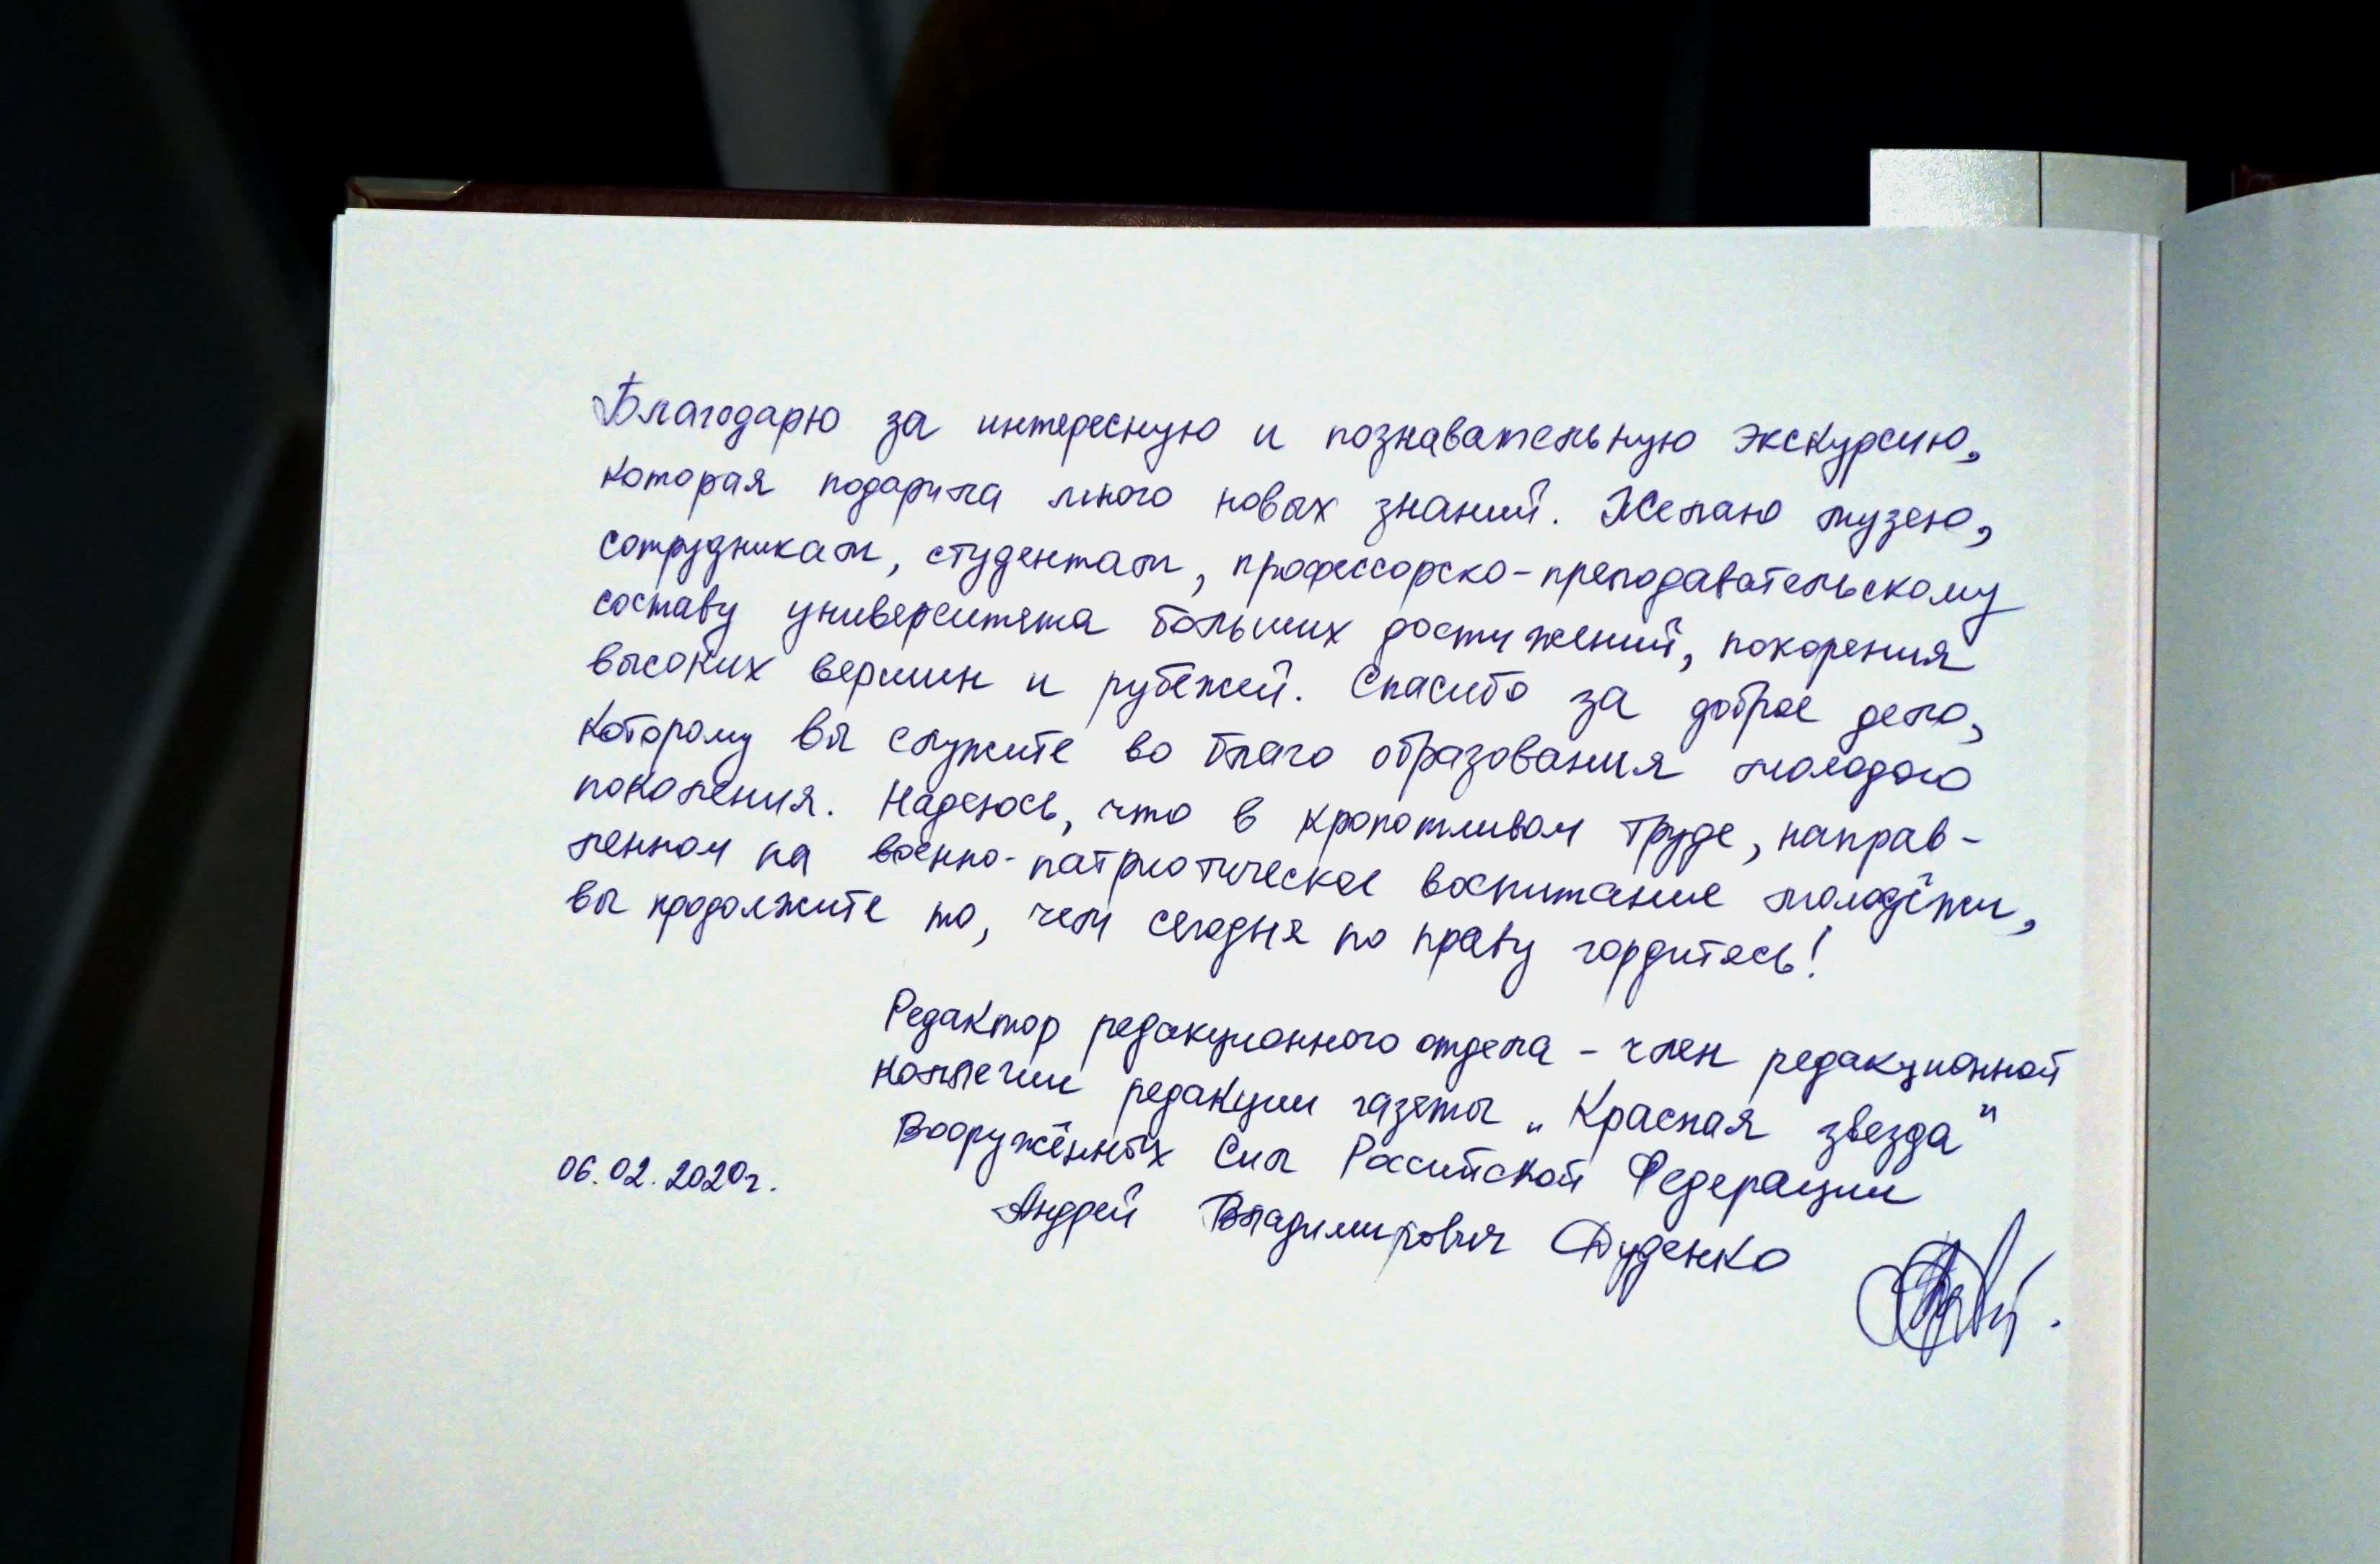 Благодарю за интересную и познавательную экскурсию,
которая подарила много новых знаний. Желаю музею,
сотрудникам, студентам, профессорско-преподавательскому
составу университета больших достижений, покорения
высоких вершин и рубежей. Спасибо за доброе дело,
которому вы служите во благо образования молодого
поколения. Надеюсь, что в кропотливом труде, направ-
ленном на военно-патриотическое воспитание молодёжи,
вы продолжите то, чем сегодня по праву гордитесь!
Редактор редакционного отдела - член редакционной
коллегии редакции газеты „Красная звезда"
Вооружённых Сил Российской Федерации
06.02.2020г.
Андрей Владимирович Дуденко